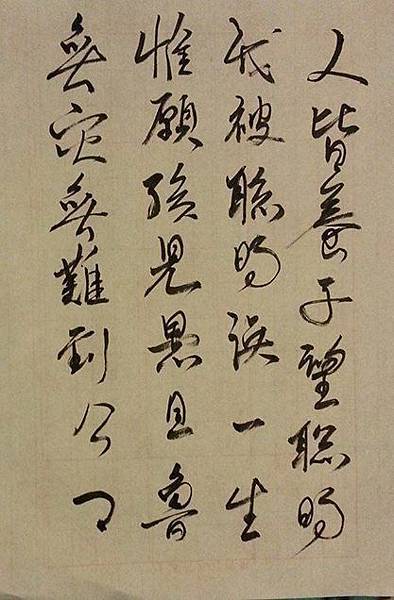 人皆養子望聰明
我被聰明誤一生
惟願孩兒愚且魯
無災無難到公卿